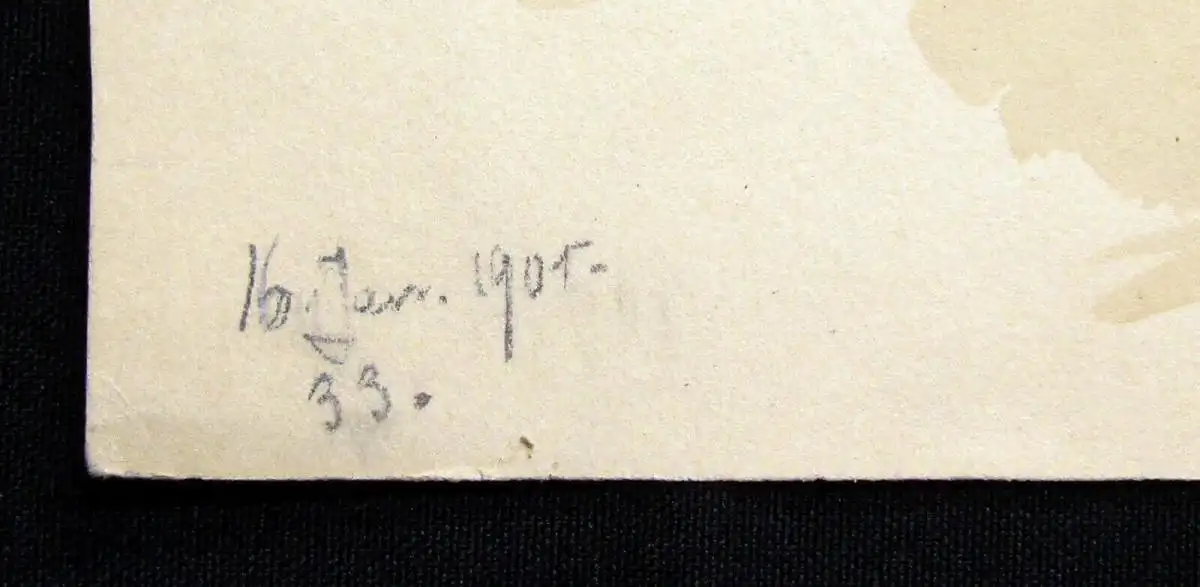 16. Jan. 1905.
33.